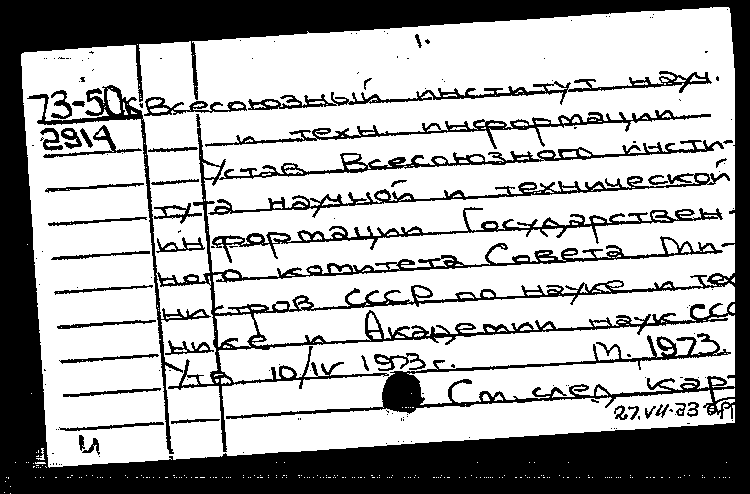 1.
73-50к Всесоюзный институт науч.
2914 и техн. информации
Устав Всесоюзного инсти-
тута научной и технической
информации Государствен-
ного комитета Совета Ми-
нистров СССР по науке и тех
нике и Академии наук ССС
Утв 10/IV 1973 г. М. 1973.
См. след. карт
27.VII-73
и